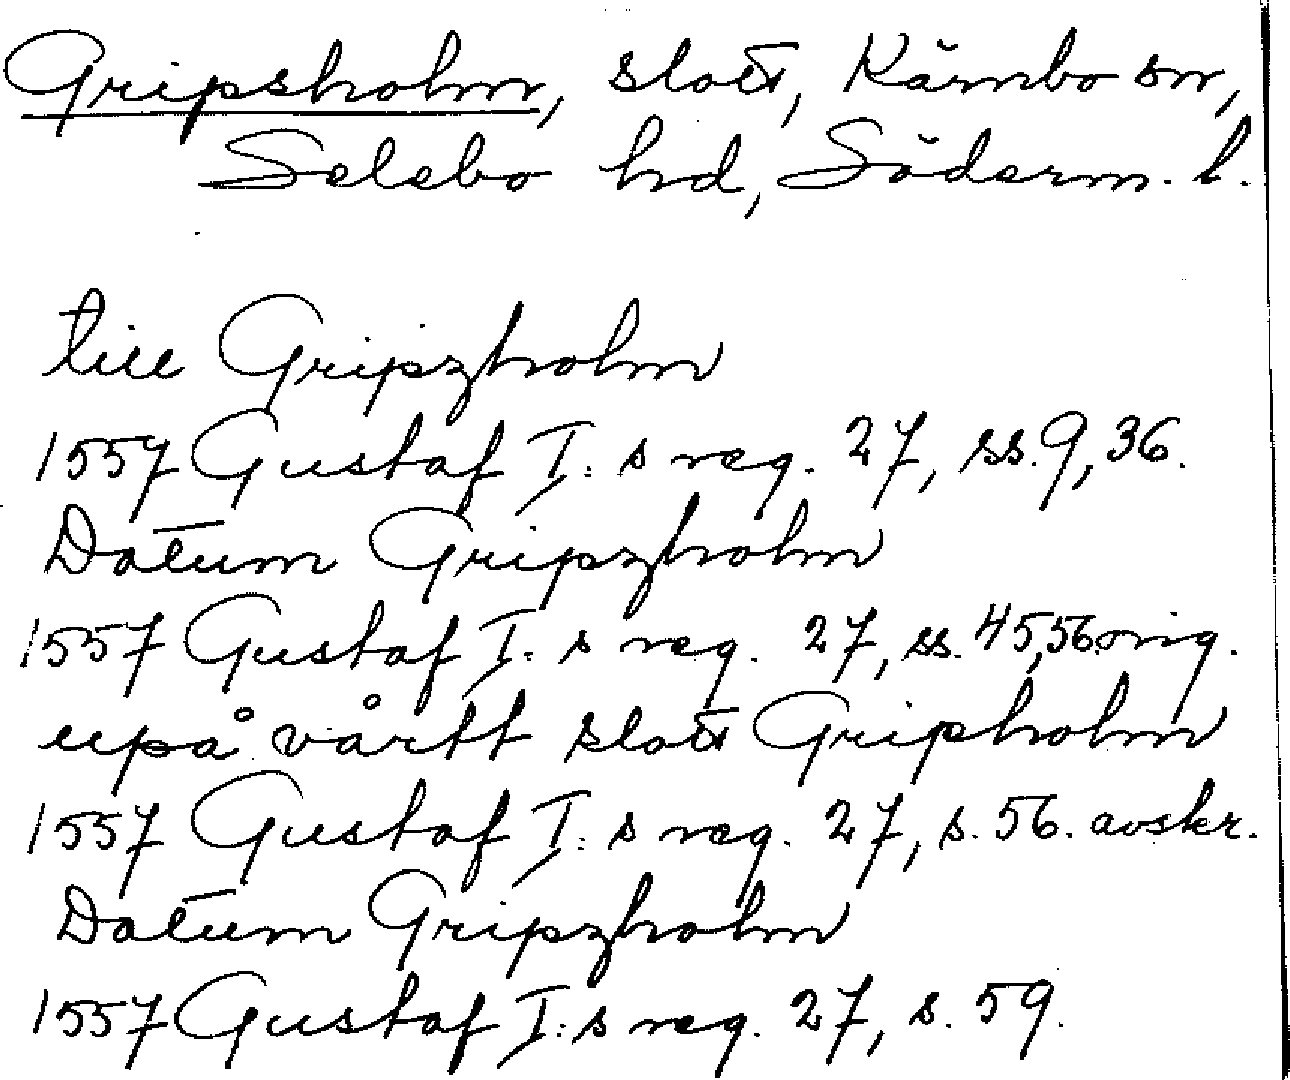 Gripsholm, slott, Kärnbo sn,
Selebo hd, Söderm. l.
till Gripzholm
1557 Gustaf I: s reg. 27, ss. 9, 36.
Datum Gripzholm
1557 Gustaf I: s reg. 27, ss. 45, 56 orig.
upå vårtt slott Gripholm
1557 Gustaf I: s reg. 27, s. 56. avskr.
Datum Gripzholm
1557 Gustaf I: s reg. 27, s. 59.